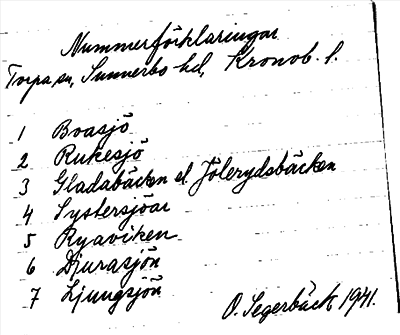 Nummerförklaringar
Torpa sn, Sunnerbo hd, Kronob. l.
1 Boasjö
2 Rukesjö
3 Gladabäcken el Jölerydsbäcken
4 Systersjöar
5 Ryaviken
6 Djurasjön
7 Ljungsjön
O. Segerbäck 1941.